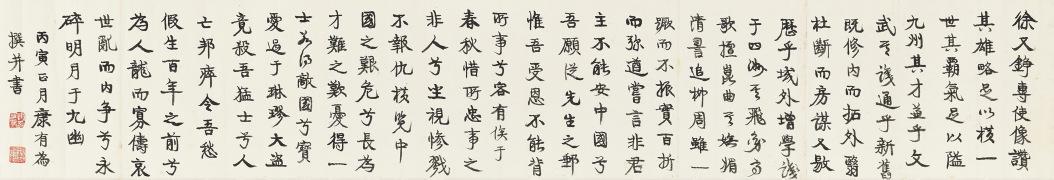 徐又錚專使像讚
其雄略足以橫一
世其霸氣足以隘
九州其才兼乎文
武其識通乎新舊
既修內而拓外翳
杜斷而房謀又敭
歷乎域外增學識
于四海之飛
歌擅崑曲之娬媚
清書追柳周雖一
蹶而不振實百折
而弥遒嘗言非君
主不能安中國兮
吾願從先生之郵
惟吾受恩不能背
所事兮容有俟于
春秋惜所忠事之
非人兮坐視慘戮
不報仇橫覽中
國之艱危兮長為
才難之歎憂得一
士若得敵國兮寶
愛過于琳璆大盜
竟殺吾猛士兮人
亡邦瘁令吾愁
假生百年之前兮
為人龍而寡儔哀
世亂而內爭兮永
碎明月于九幽
丙寅正月康有為
撰并書